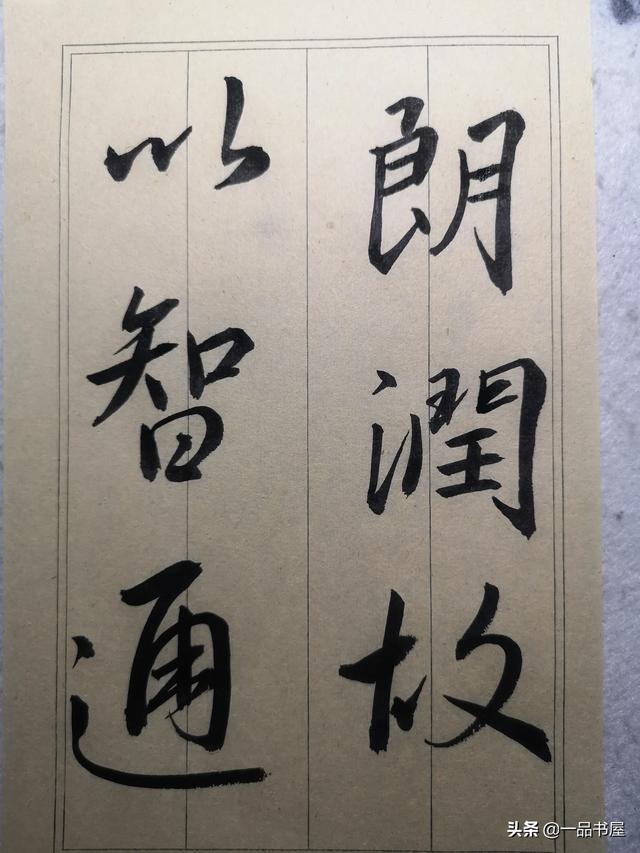 朗潤故
以智通
头条 @一品书屋